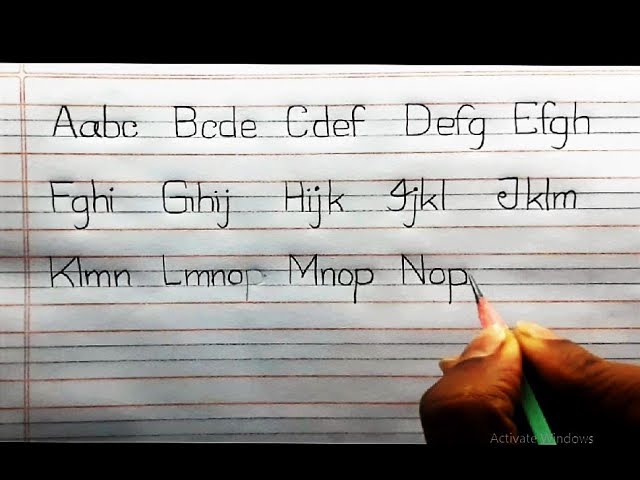 Aabc Bcde Cdef Defg Efgh
Fghi Ghij Hijk Ijkl Jklm
Klmn Lmnop Mnop Nop
Activate Windows